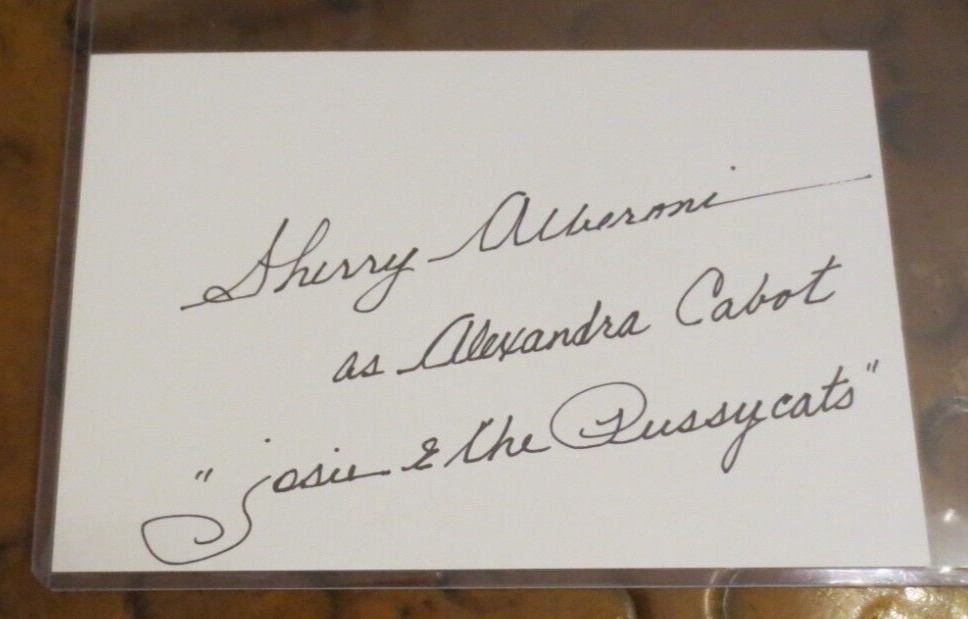 Sherry Alberoni
as Alexandra Cabot
"Josie & the Pussycats"